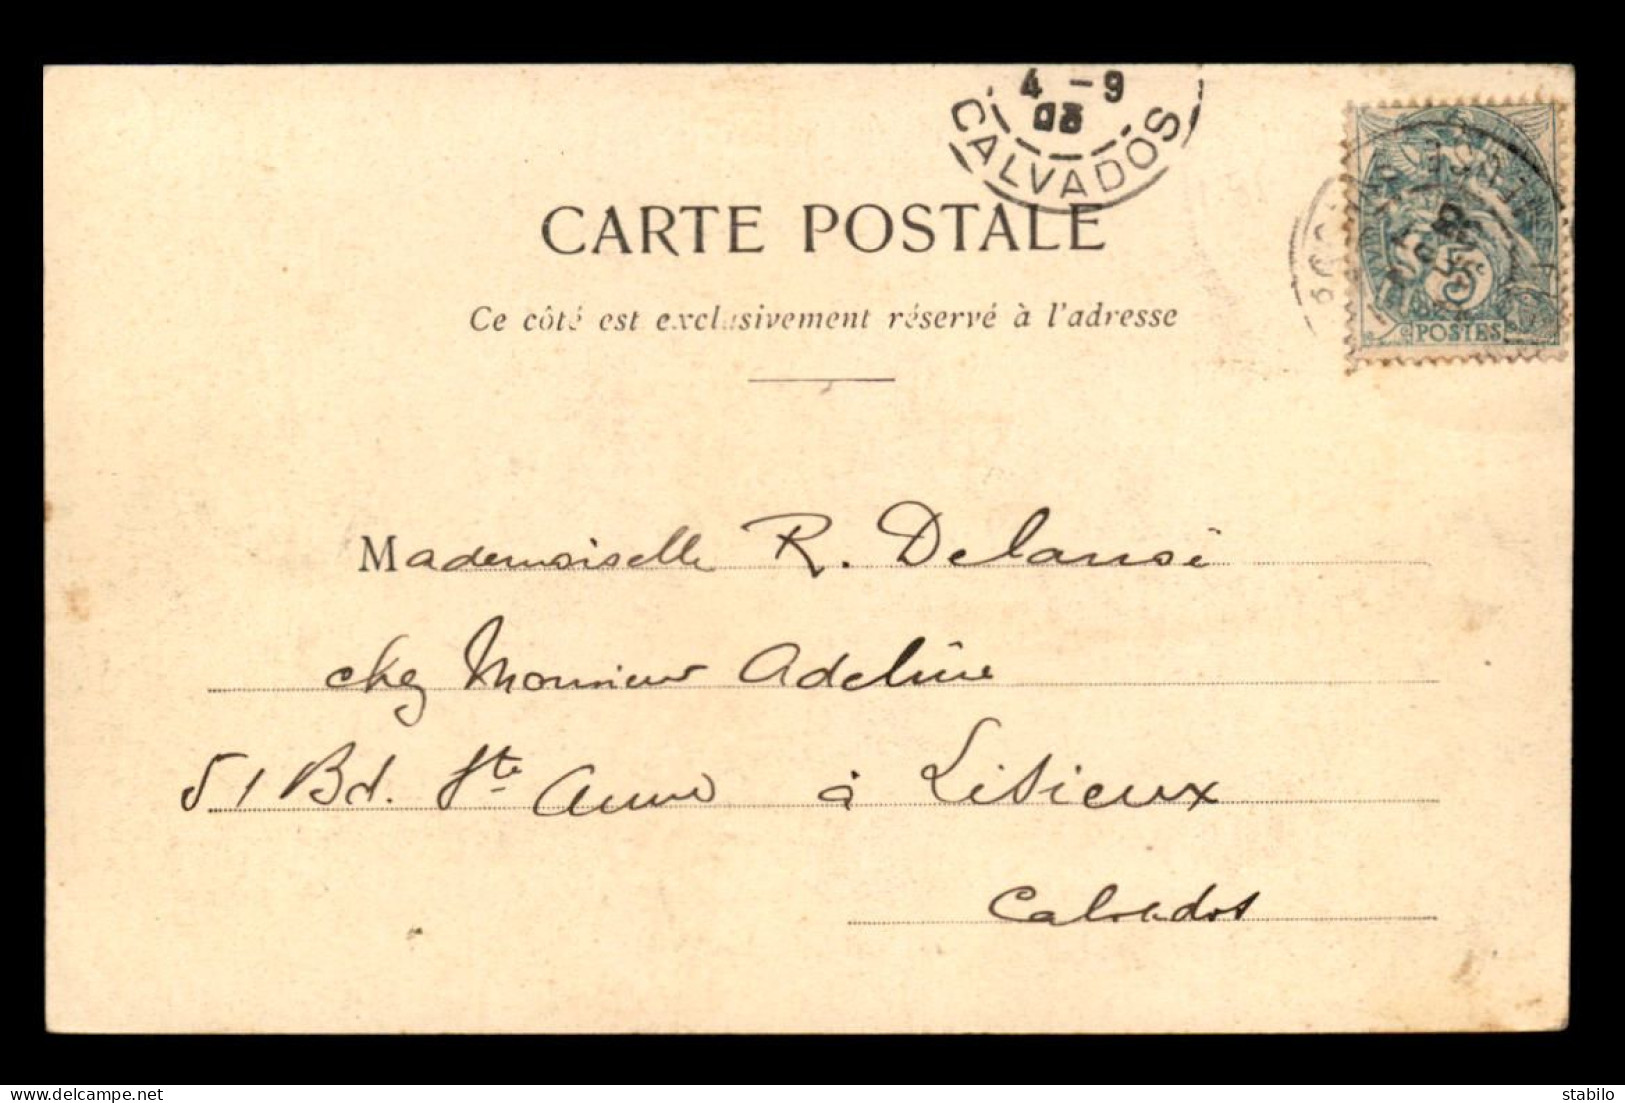 4 - 9
03
CALVADOS
CARTE POSTALE
Ce côté est exclusivement réservé à l'adresse
5
POSTES
Mademoiselle R. Delansé
chez Monsieur Adeline
51 Bd. Ste Anne à Lisieux
Calvados
stabilo